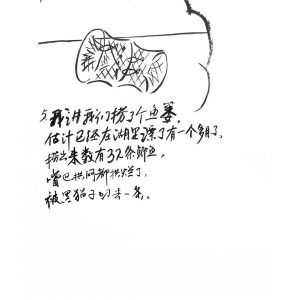 5、我讲我们捞了个鱼篓,
估计已经在湖里漂了有一个多月了。
捞出来数有32条鲫鱼,
嘴巴拱网都拱烂了,
被黑猫子叼去一条。